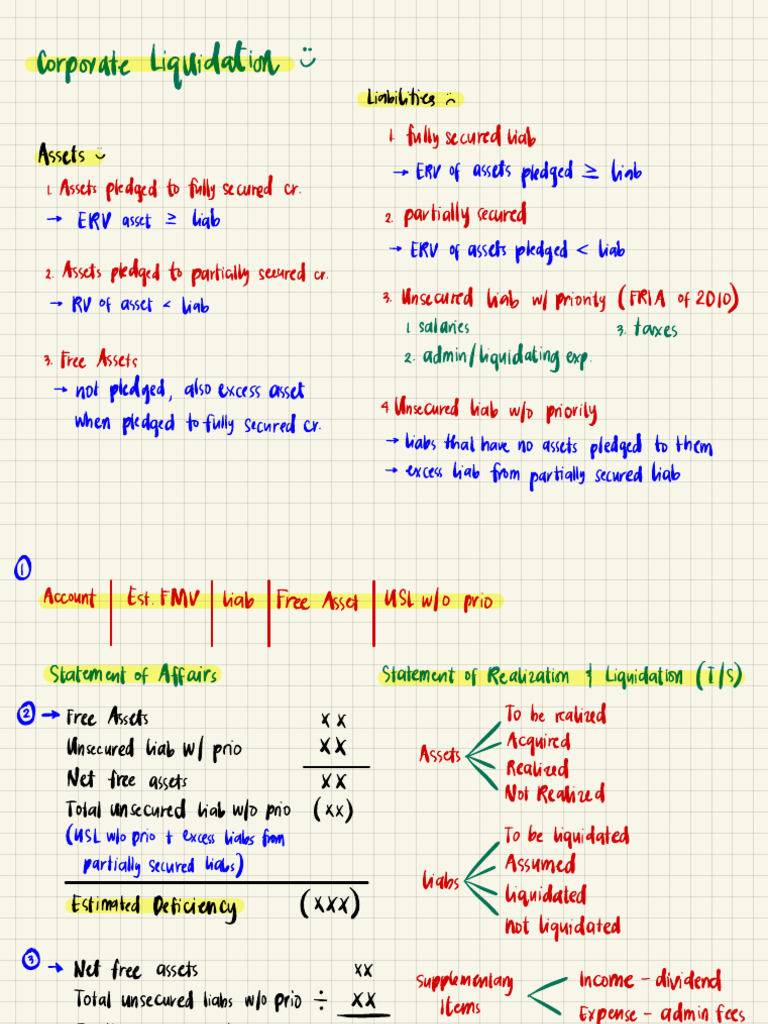 Corporate Liquidation
Assets
1. Assets pledged to fully secured cr.
→ ERV asset ≥ liab
2. Assets pledged to partially secured cr.
→ RV of asset < liab
3. Free Assets
→ not pledged, also excess asset
when pledged to fully secured cr.
Liabilities
1. fully secured liab
→ ERV of assets pledged ≥ liab
2. partially secured
→ ERV of assets pledged < liab
3. Unsecured liab w/ priority (FRIA of 2010)
1. salaries 3. taxes
2. admin/liquidating exp.
4 Unsecured liab w/o priority
→ liabs that have no assets pledged to them
→ excess liab from partially secured liab
1
Account Est. FMV liab Free Asset USL w/o prio
Statement of Affairs
2 → Free Assets xx
Unsecured liab w/ prio xx
Net free assets xx
Total unsecured liab w/o prio (xx)
(USL w/o prio + excess liabs from
partially secured liabs)
Estimated Deficiency (xxx)
3 → Net free assets xx
Total unsecured liabs w/o prio ÷ xx
Statement of Realization & Liquidation (T/S)
Assets
To be realized
Acquired
Realized
Not Realized
Liabs
To be liquidated
Assumed
liquidated
not liquidated
Supplementary
Items
Income - dividend
Expense - admin fees